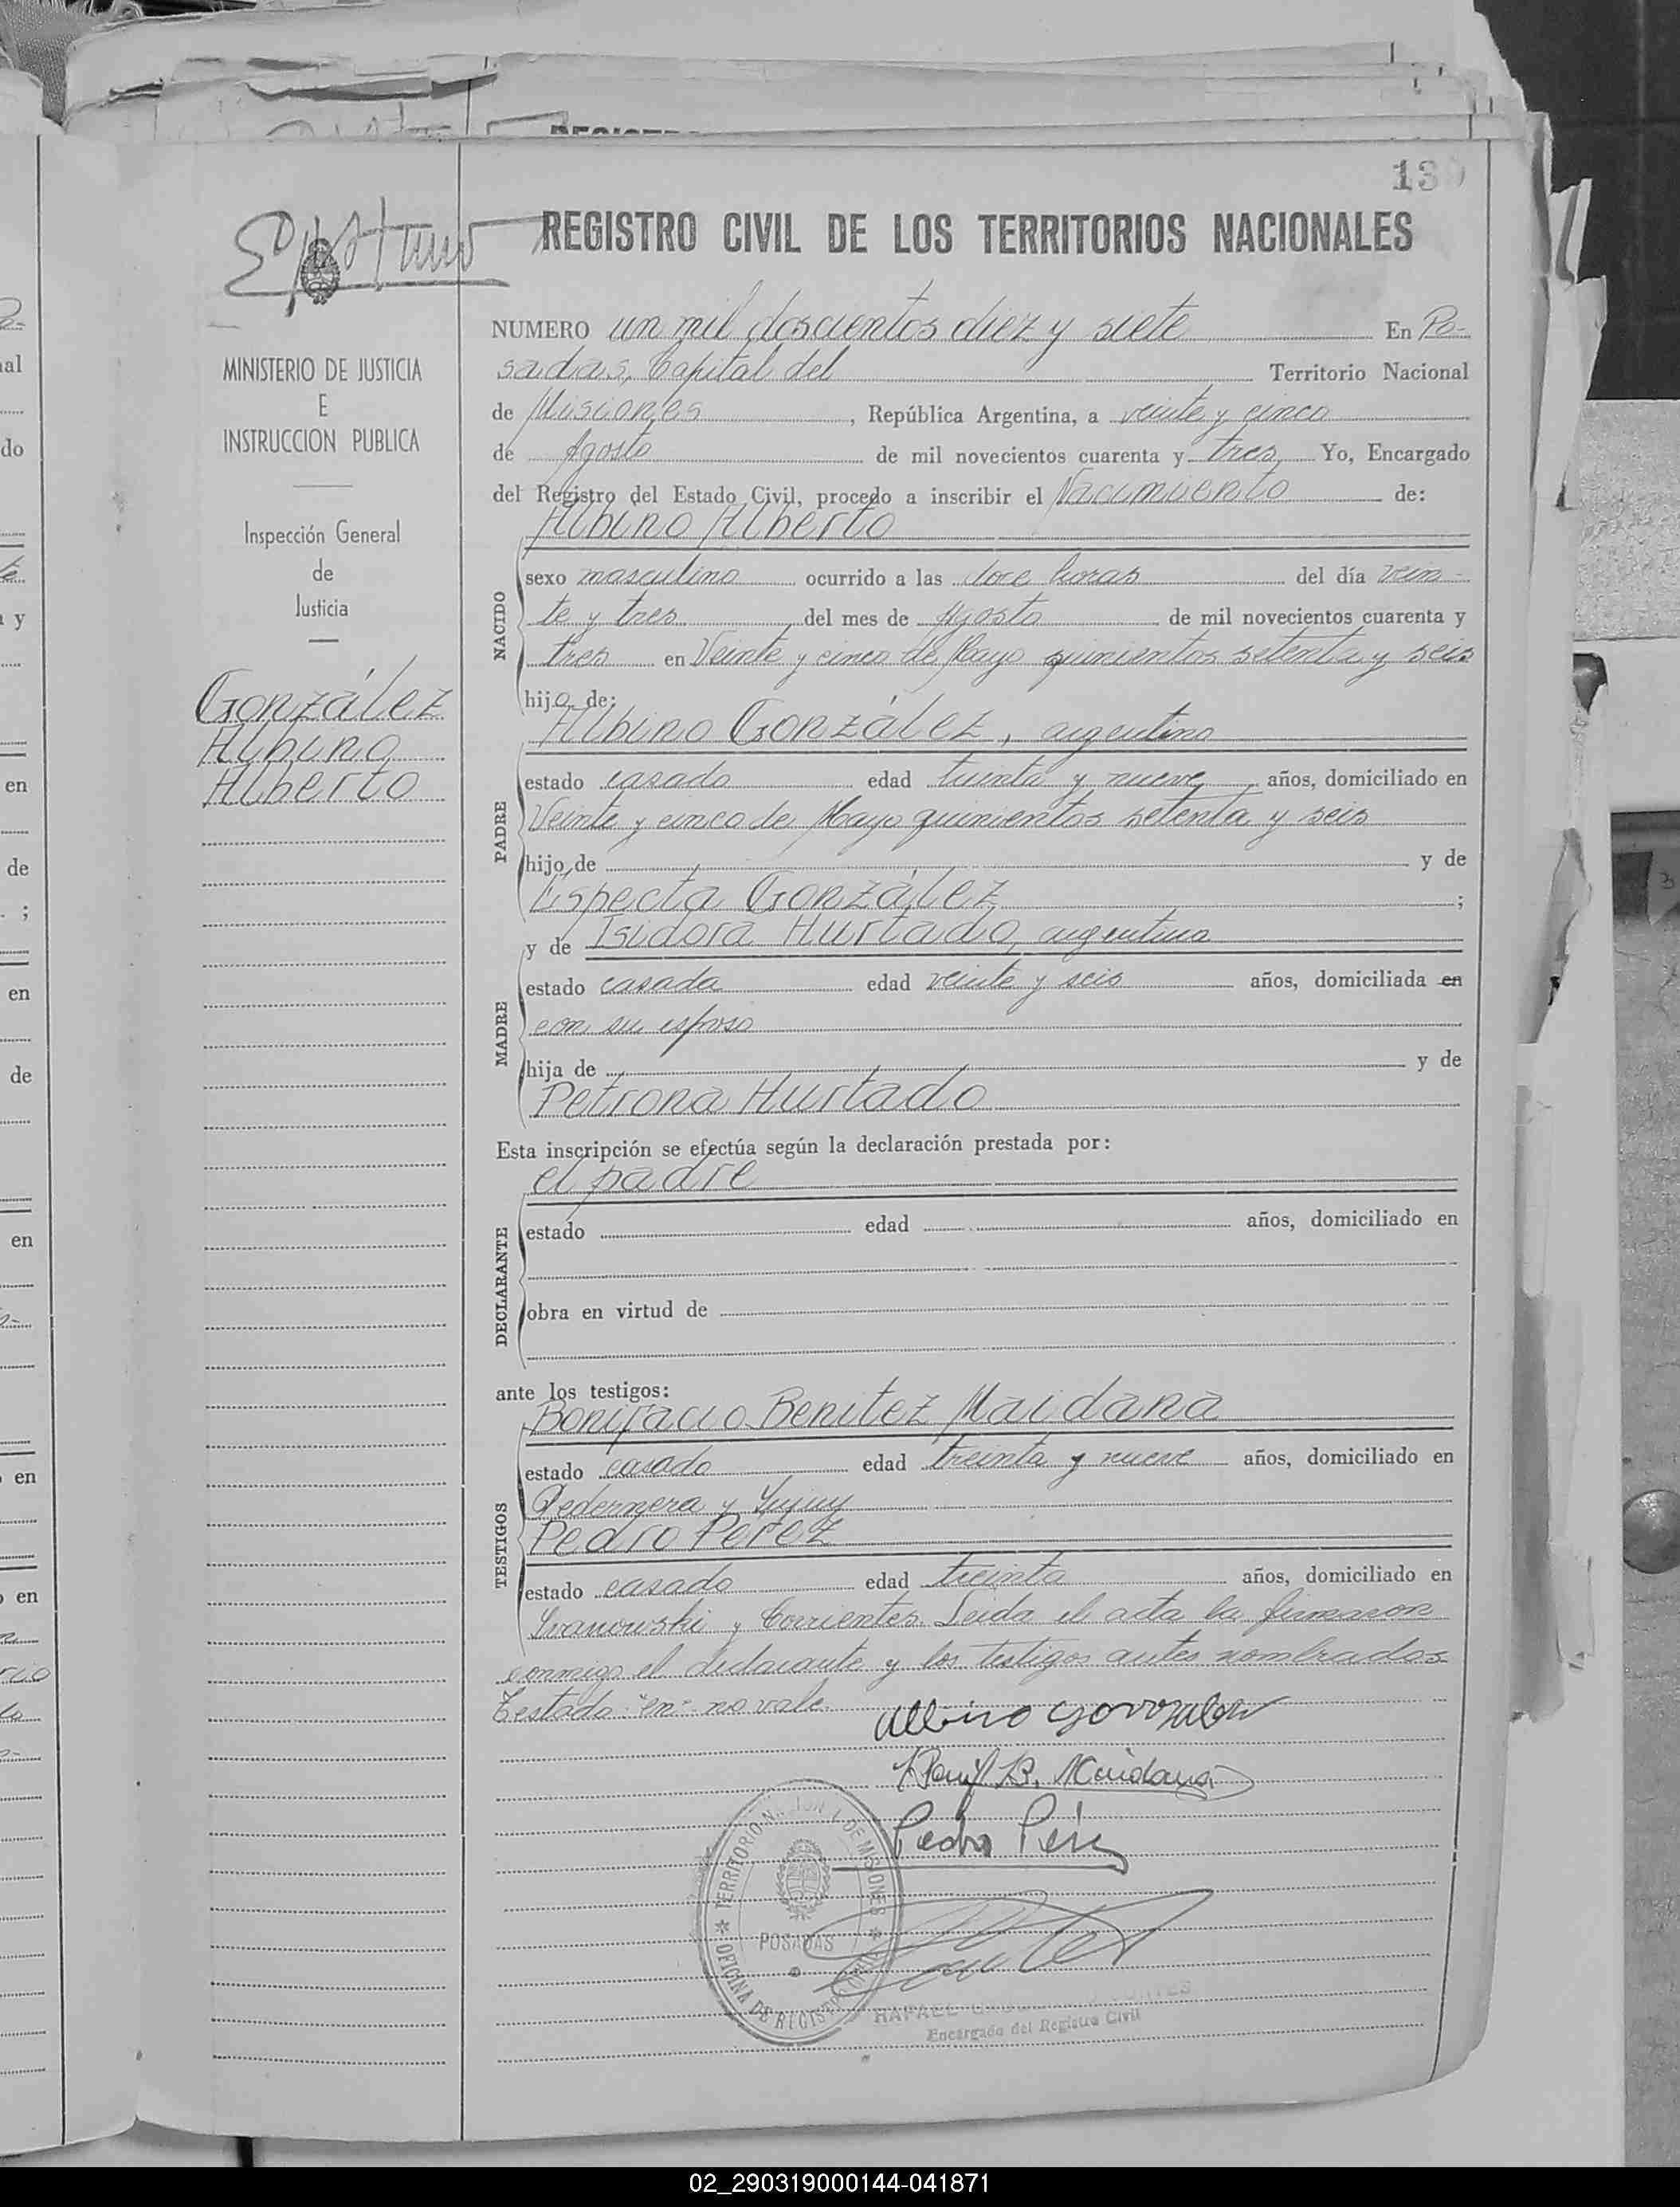 13
REGISTRO CIVIL DE LOS TERRITORIOS NACIONALES
MINISTERIO DE JUSTICIA
E
INSTRUCCION PUBLICA
Inspección General
de
Justicia
González
Albino
Alberto
NUMERO un mil doscientos diez y siete En Po-
sadas, Capital del Territorio Nacional
de Misiones, República Argentina, a veinte y cinco
de Agosto de mil novecientos cuarenta y tres Yo, Encargado
del Registro del Estado Civil, procedo a inscribir el Nacimiento de:
Albino Alberto
NACIDO
sexo masculino ocurrido a las doce horas del día vein-
te y tres del mes de Agosto de mil novecientos cuarenta y
tres en Veinte y cinco de Mayo quinientos setenta y seis
hijo de:
Albino González, argentino
PADRE
estado casado edad treinta y nueve años, domiciliado en
Veinte y cinco de Mayo quinientos setenta y seis
hijo de y de
Especta González ;
y de Isidora Hurtado, argentina
MADRE
estado casada edad veinte y seis años, domiciliada en
con su esposo
hija de y de
Petrona Hurtado
Esta inscripción se efectúa según la declaración prestada por:
el padre
DECLARANTE
estado edad años, domiciliado en
obra en virtud de
ante los testigos:
Bonifacio Benitez Maidana
TESTIGOS
estado casado edad treinta y nueve años, domiciliado en
Pedernera y Jujuy
Pedro Perez
estado casado edad treinta años, domiciliado en
Ivanowski y Corrientes. Leida el acta la firmaron
conmigo el declarante y los testigos antes nombrados
Testado "en" no vale.
Albino Gonzalez
Bonif B. Maidana
Pedro Pérez
TERRITORIO NACIONAL DE MISIONES
POSADAS
OFICINA DE REGISTRO
RAFAEL
Encargado del Registro Civil
al
do
y
en
de
;
en
de
en
en
en
02_290319000144-041871